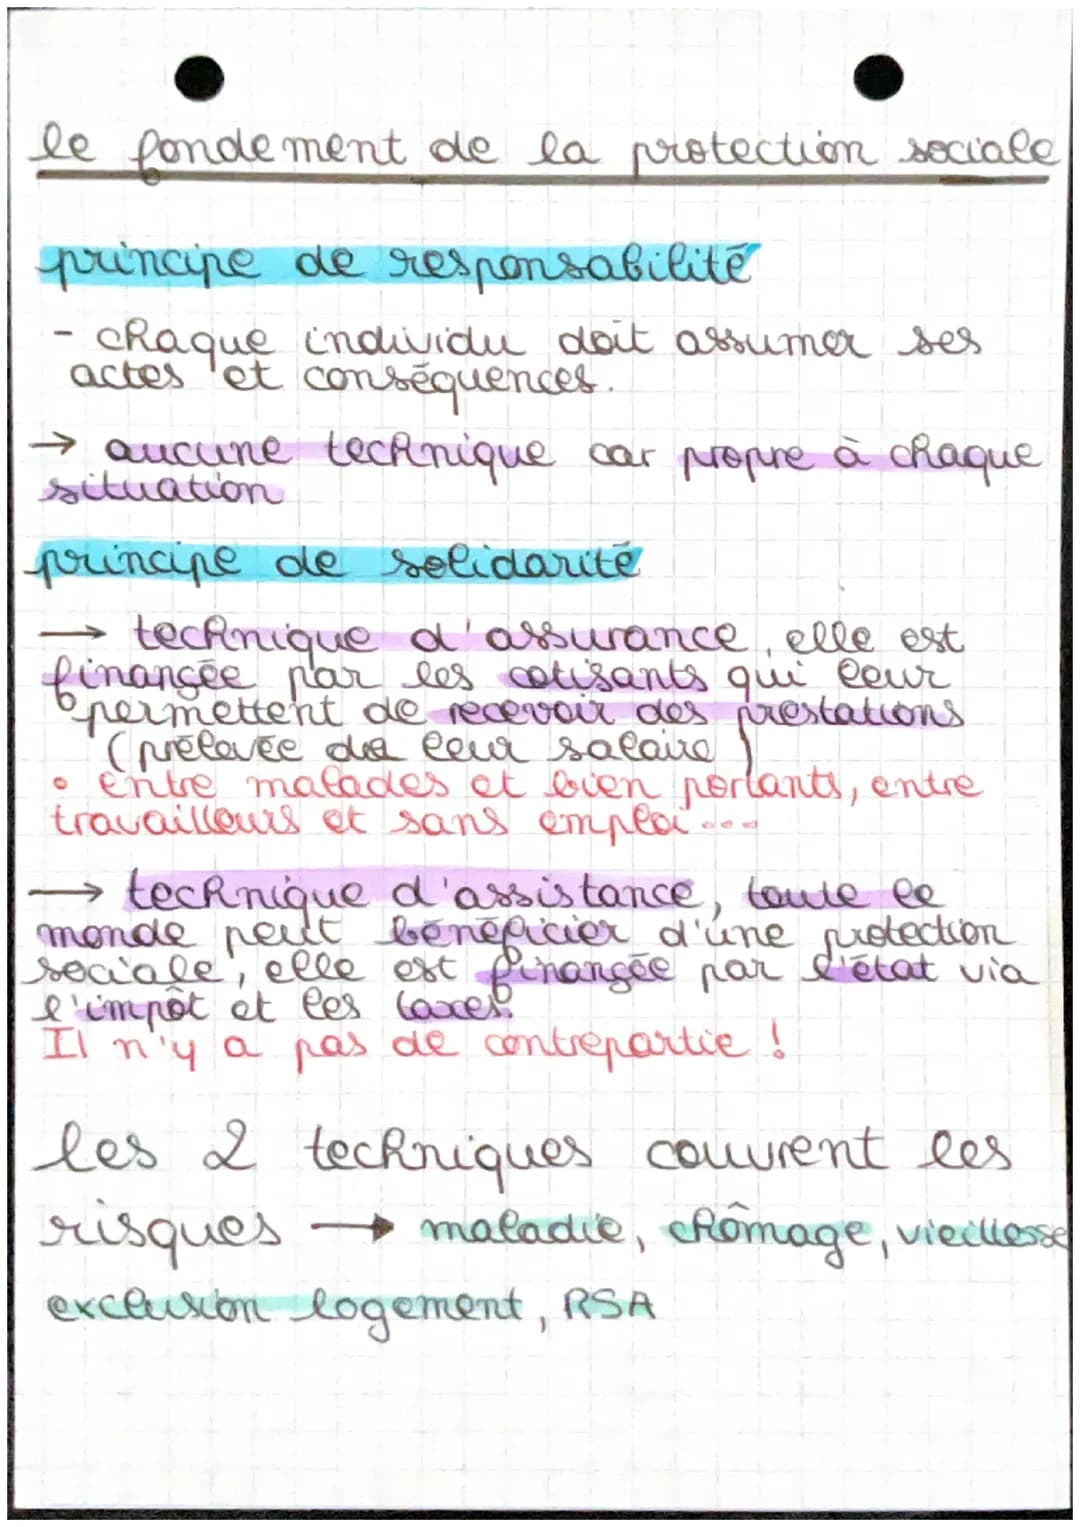 le fondement de la protection sociale
principe de responsabilité
- chaque individu doit assumer ses
actes et conséquences.
→ aucune technique car propre à chaque
situation
principe de solidarité
→ technique d'assurance, elle est
financée par les cotisants qui leur
permettent de recevoir des prestations
(prélevée de leur salaire)
• entre malades et bien portants, entre
travailleurs et sans emploi...
→ technique d'assistance, toute le
monde peut bénéficier d'une protection
sociale, elle est financée par l'état via
l'impôt et les taxes.
Il n'y a pas de contrepartie !
les 2 techniques couvrent les
risques → maladie, chômage, vieillesse
exclusion logement, RSA